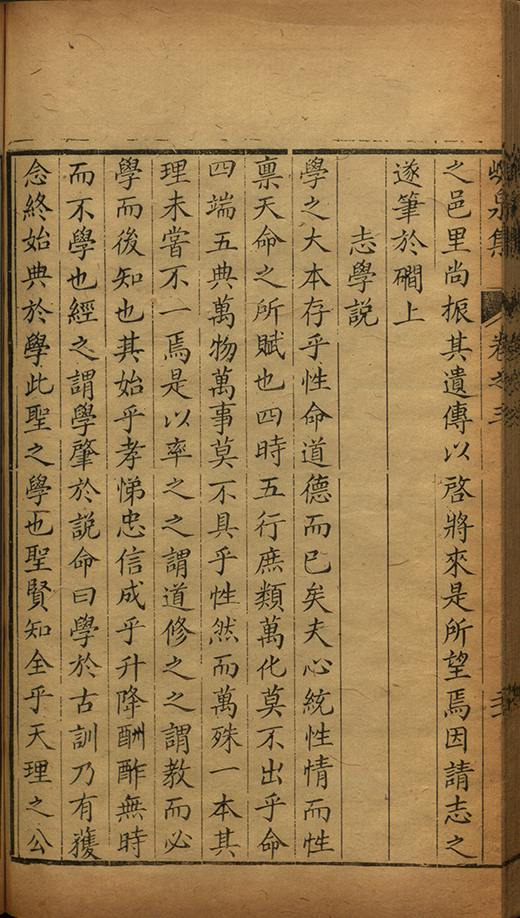 峴泉集 卷之三
之邑里尚振其遺傳以啓將來是所望焉因請志之
遂筆於磵上
志學説
學之大本存乎性命道德而已矣夫心統性情而性
禀天命之所賦也四時五行庶類萬化莫不出乎命
四端五典萬物萬事莫不具乎性然而萬殊一本其
理未嘗不一焉是以率之之謂道修之之謂教而必
學而後知也其始乎孝悌忠信成乎升降酬酢無時
而不學也經之謂學肇於説命曰學於古訓乃有獲
念終始典於學此聖之學也聖賢知全乎天理之公